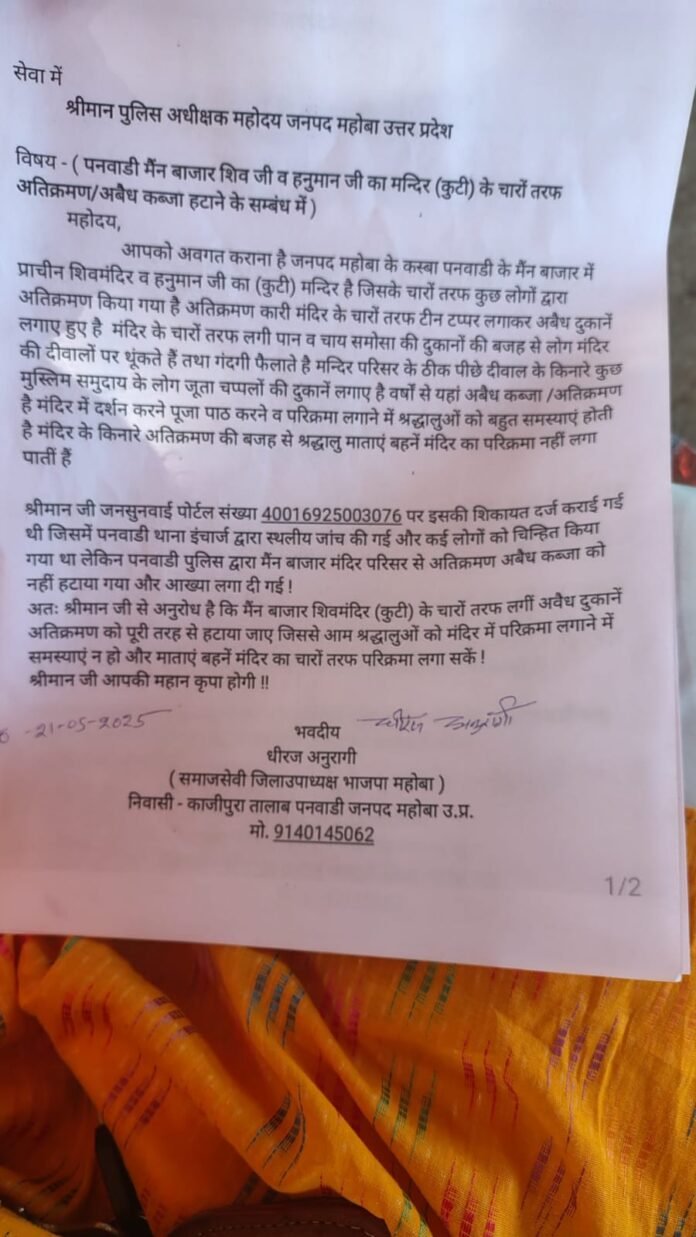 सेवा में
श्रीमान पुलिस अधीक्षक महोदय जनपद महोबा उत्तर प्रदेश
विषय - ( पनवाडी मैंन बाजार शिव जी व हनुमान जी का मन्दिर (कुटी) के चारों तरफ
अतिक्रमण/अबैध कब्जा हटाने के सम्बंध में )
महोदय,
आपको अवगत कराना है जनपद महोबा के कस्बा पनवाडी के मैंन बाजार में
प्राचीन शिवमंदिर व हनुमान जी का (कुटी) मन्दिर है जिसके चारों तरफ कुछ लोगों द्वारा
अतिक्रमण किया गया है अतिक्रमण कारी मंदिर के चारों तरफ टीन टप्पर लगाकर अबैध दुकानें
लगाए हुए है मंदिर के चारों तरफ लगी पान व चाय समोसा की दुकानों की बजह से लोग मंदिर
की दीवालों पर थूंकते हैं तथा गंदगी फैलाते है मन्दिर परिसर के ठीक पीछे दीवाल के किनारे कुछ
मुस्लिम समुदाय के लोग जूता चप्पलों की दुकानें लगाए है वर्षों से यहां अबैध कब्जा /अतिक्रमण
है मंदिर में दर्शन करने पूजा पाठ करने व परिक्रमा लगाने में श्रद्धालुओं को बहुत समस्याएं होती
है मंदिर के किनारे अतिक्रमण की बजह से श्रद्धालु माताएं बहनें मंदिर का परिक्रमा नहीं लगा
पातीं हैं
श्रीमान जी जनसुनवाई पोर्टल संख्या 40016925003076 पर इसकी शिकायत दर्ज कराई गई
थी जिसमें पनवाडी थाना इंचार्ज द्वारा स्थलीय जांच की गई और कई लोगों को चिन्हित किया
गया था लेकिन पनवाडी पुलिस द्वारा मैंन बाजार मंदिर परिसर से अतिक्रमण अबैध कब्जा को
नहीं हटाया गया और आख्या लगा दी गई !
अतः श्रीमान जी से अनुरोध है कि मैंन बाजार शिवमंदिर (कुटी) के चारों तरफ लगीं अवैध दुकानें
अतिक्रमण को पूरी तरह से हटाया जाए जिससे आम श्रद्धालुओं को मंदिर में परिक्रमा लगाने में
समस्याएं न हो और माताएं बहनें मंदिर का चारों तरफ परिक्रमा लगा सकें !
श्रीमान जी आपकी महान कृपा होगी !!
-21-05-2025
भवदीय धीरज अनुरागी
धीरज अनुरागी
( समाजसेवी जिलाउपाध्यक्ष भाजपा महोबा )
निवासी - काजीपुरा तालाब पनवाडी जनपद महोबा उ.प्र.
मो. 9140145062
1/2